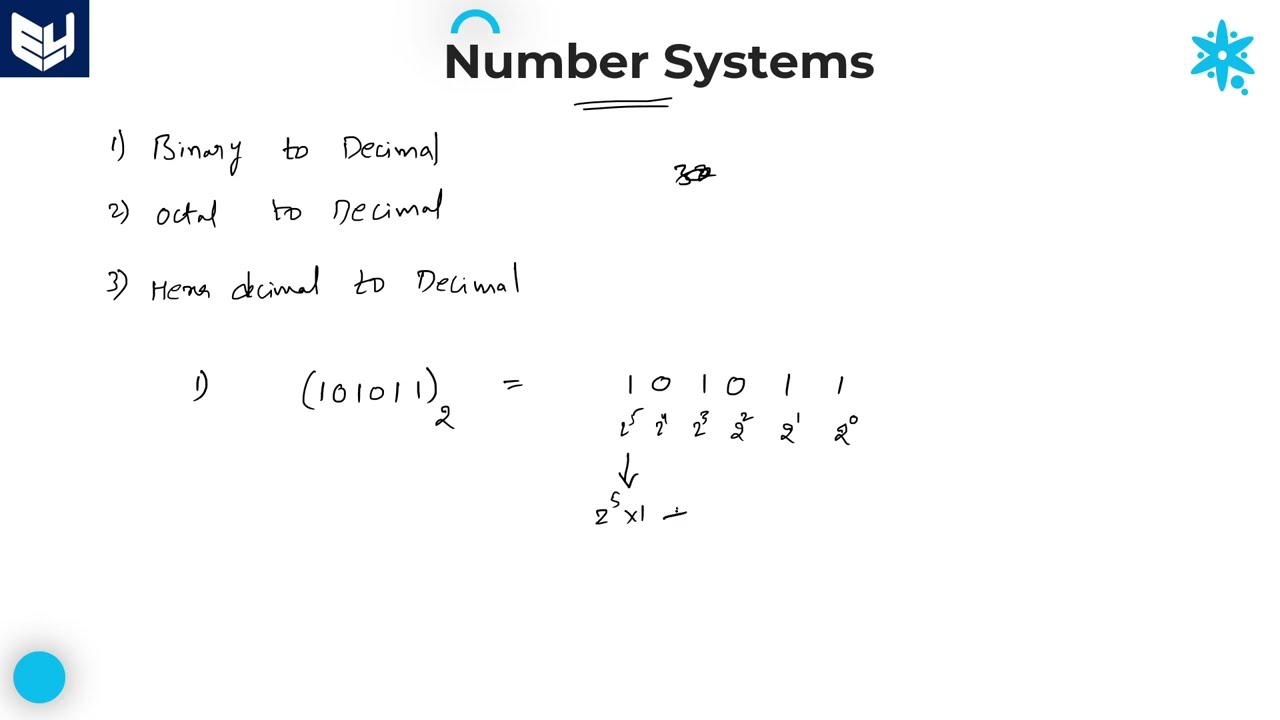 EH
Number Systems
1) Binary to Decimal
2) octal to Decimal
3) Hexa decimal to Decimal
1) (101011)₂ = 1 0 1 0 1 1
2⁵ 2⁴ 2³ 2² 2¹ 2⁰
2⁵ x1